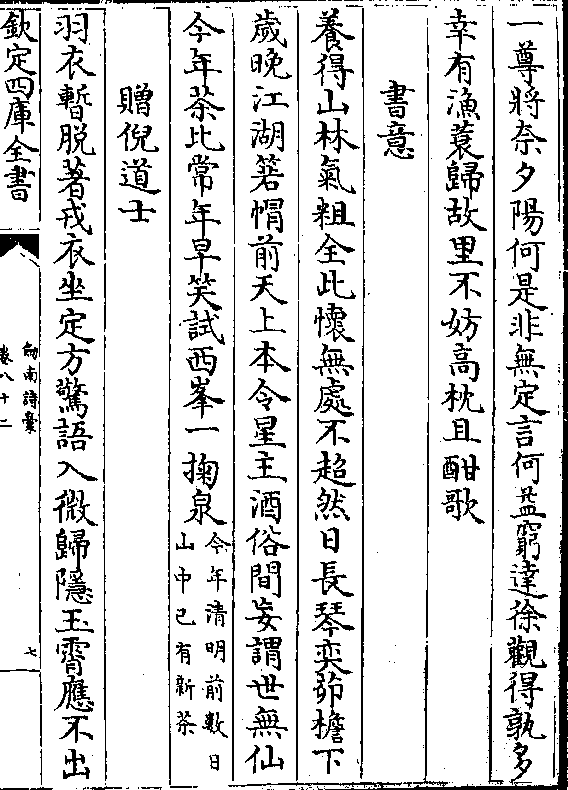 一尊將奈夕陽何是非無定言何益窮達徐觀得孰多
幸有漁蓑歸故里不妨高枕且酣歌
書意
養得山林氣粗全此懷無處不超然日長琴奕茆檐下
歲晚江湖箬帽前天上本令星主酒俗間妄謂世無仙
今年茶比常年早笑試西峯一掬泉今年清明前數日
山中已有新茶
贈倪道士
羽衣暫脱著戎衣坐定方驚語入微歸隱玉霄應不出
欽定四庫全書
劒南詩藁
卷八十二
七